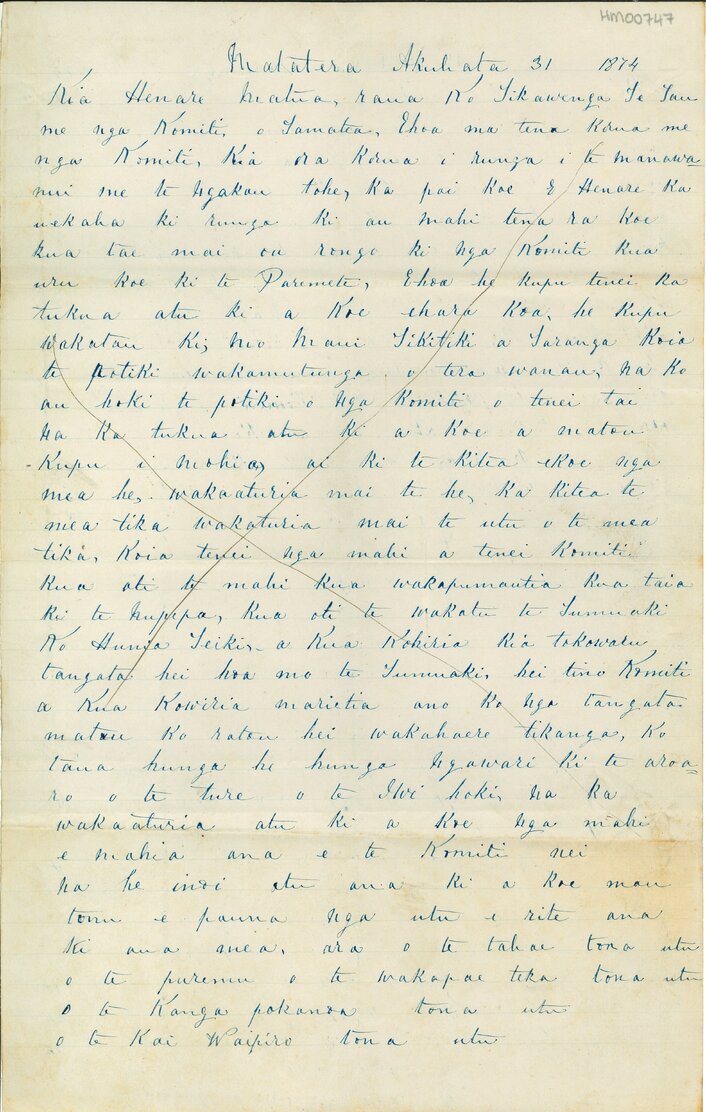 HM00747
Matatera Akuhata 31 1874
Kia Henare Matua, raua Ko Tikawenga Te Tau
me nga Komiti, o Tamatea, Ehoa ma tena Korua me
nga Komiti, Kia ora Korua i runga i te manawa=
nui me te Ngakau tohe, Ka pai Koe E Henare Ka
uekaha ki runga ki au mahi tena ra Koe
kua tae mai ou rongo ki nga Komiti kua
uru koe ki te Paremete, Ehoa he kupu tenei ka
tukua atu ki a Koe ehara Koa, he Kupu
wakatau Ki, mo Maui Tikitiki a Taranga Koia
te potiki wakamutunga o tera wanau, na Ko
au hoki te potiki o nga Komiti o tenei tai
Na Ka tukua atu ki a Koe a matou
Kupu i mohio ai ki te Kitea ekoe nga
mea he, wakaaturia mai te he, Ka Kitea te
mea tika wakaturia mai te utu o te mea
tika, Koia tenei nga mahi a tenei Komiti
Kua oti te mahi kua wakapumautia Kua taia
ki te Nupepa, Kua oti te wakatu te Tumuaki
Ko Hunia Teiki, a Kua Kohiria Kia tokowaru
tangata hei hoa mo te Tumuaki, hei tino Komiti
a Kua Kowiria marietia ano Ko nga tangata
matau Ko ratou hei wakahaere tikanga, Ko
taua hunga he hunga Ngawari Ki te aroa=
ro o te ture o te Iwi hoki, na ka
wakaaturia atu ki a Koe nga mahi
e mahia ana e te Komiti nei
na he inoi atu ana ki a koe mau
tonu e pauna nga utu e rite ana
ki aua mea, ara o te tahae tona utu
o te puremu o te wakapae teka tona utu
o te Kanga pokanoa tona utu
o te Kai Waipiro tona utu